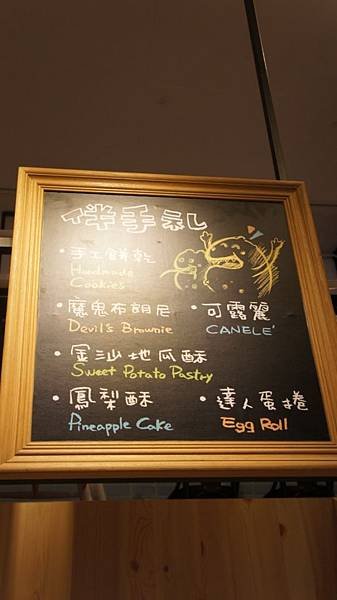 伴手礼
・手工餅乾
Handmade
Cookies
・魔鬼布朗尼
Devil's Brownie
・可露麗
CANELE'
・金沙地瓜酥
Sweet Potato Pastry
・鳳梨酥
Pineapple Cake
・達人蛋捲
Egg Roll